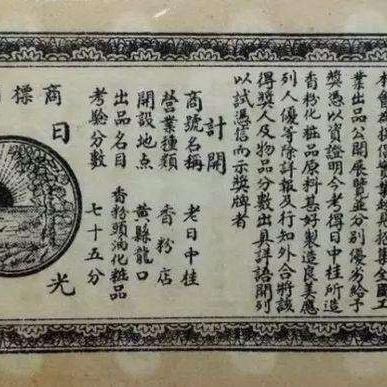 業出品公開展覽並分別優劣給予
獎憑以資證明今考得日中桂所造
香粉化粧品原料甚好製造良美應
列人優等除註報及行知外合將該
得獎人及物品分數出具評語開列
以試憑信而示獎牌者
計開
商號名稱 老日中桂
營業種類 香粉店
開設地点 黃縣龍口
出品名目 香粉頭油化粧品
考驗分數 七十五分
商標
日光